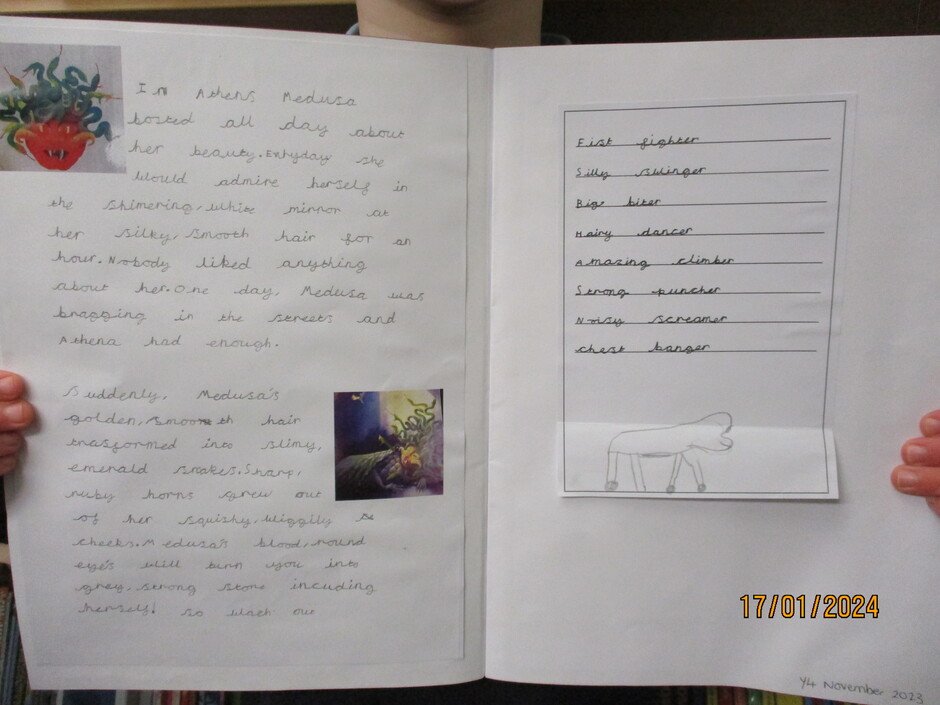 In Athens Medusa
bosted all day about
her beauty. Enryday she
would admire herself in
the shimering, white mirror at
her silky, smooth hair for an
hour. Nobody liked anything
about her. One day, Medusa was
bragging in the streets and
Athena had enough.
Suddenly, Medusa's
golden, smooth hair
trasformed into slimy,
emerald snakes. Sharp,
ruby horns grew out
of her squishy, wiggily
cheeks. Medusa's blood, round
eye's will turn you into
grey, strong stone incuding
herself! So wach out
Fist fighter
Silly swinger
Big biter
Hairy dancer
Amazing climber
Strong puncher
Noisy screamer
chest banger
17/01/2024
Y4 November 2023